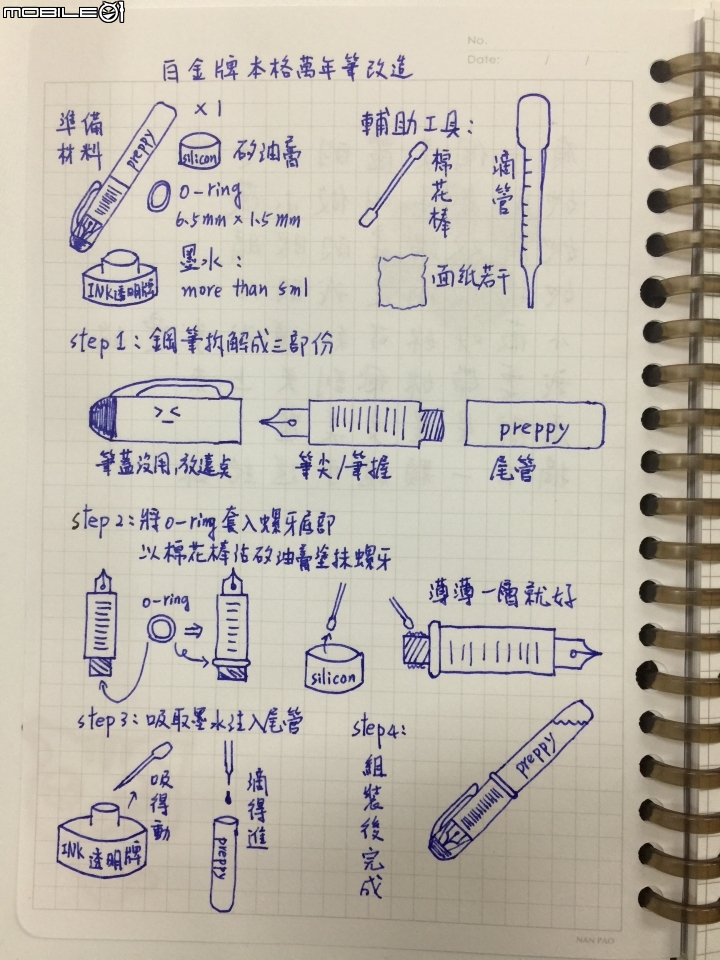 MOBILE01
No.
Date: / /
白金牌本格萬年筆改造
準備
材料
preppy
×1
silicon
矽油膏
o-ring
6.5mm×1.5mm
INK透明牌
墨水:
more than 5ml
輔助工具:
棉花棒
滴管
面紙若干
step1:鋼筆拆解成三部份
preppy
筆蓋沒用,放遠点
筆尖/筆握
尾管
step2:將o-ring套入螺牙底部
以棉花棒沾矽油膏塗抹螺牙
o-ring
silicon
薄薄一層就好
step3:吸取墨水注入尾管
吸得動
INK透明牌
滴得進
preppy
step4:
組裝後完成
preppy
NAN PAO